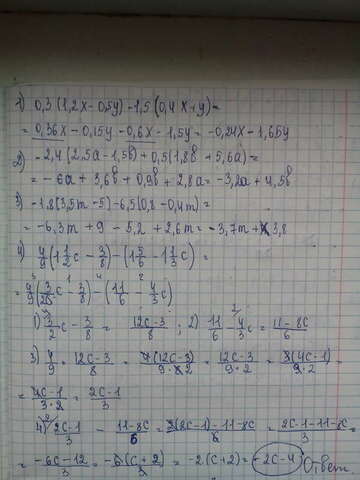 1) 0,3(1,2x-0,5y)-1,5(0,4x+y)=
= 0,36x-0,15y-0,6x-1,5y=-0,24x-1,65y
2) -2,4(2,5a-1,5b)+0,5(1,8b+5,6a)=
= -6a+3,6b+0,9b+2,8a=-3,2a+4,5b
3) -1,8(3,5m-5)-6,5(0,8-0,4m)=
= -6,3m+9-5,2+2,6m=-3,7m+3,8
4) 4/9(1 1/2c-3/8)-(1 5/6-1 1/3c)=
= 4/9(3/2c-3/8)-(11/6-4/3c)
1) 3/2c-3/8= (12c-3)/8; 2) 11/6-4/3c=(11-8c)/6
3) 4/9·(12c-3)/8=4(12c-3)/(9·2)=(12c-3)/(9·2)=3(4c-1)/(9·2)=
= (4c-1)/(3·2)=(2c-1)/3
4) (2c-1)/3-(11-8c)/6=2(2c-1)-11-8c/6=(2c-1-11-8c)/3=
= (-6c-12)/3=-6(c+2)/3=-2(c+2)=-2c-4 Ответ.